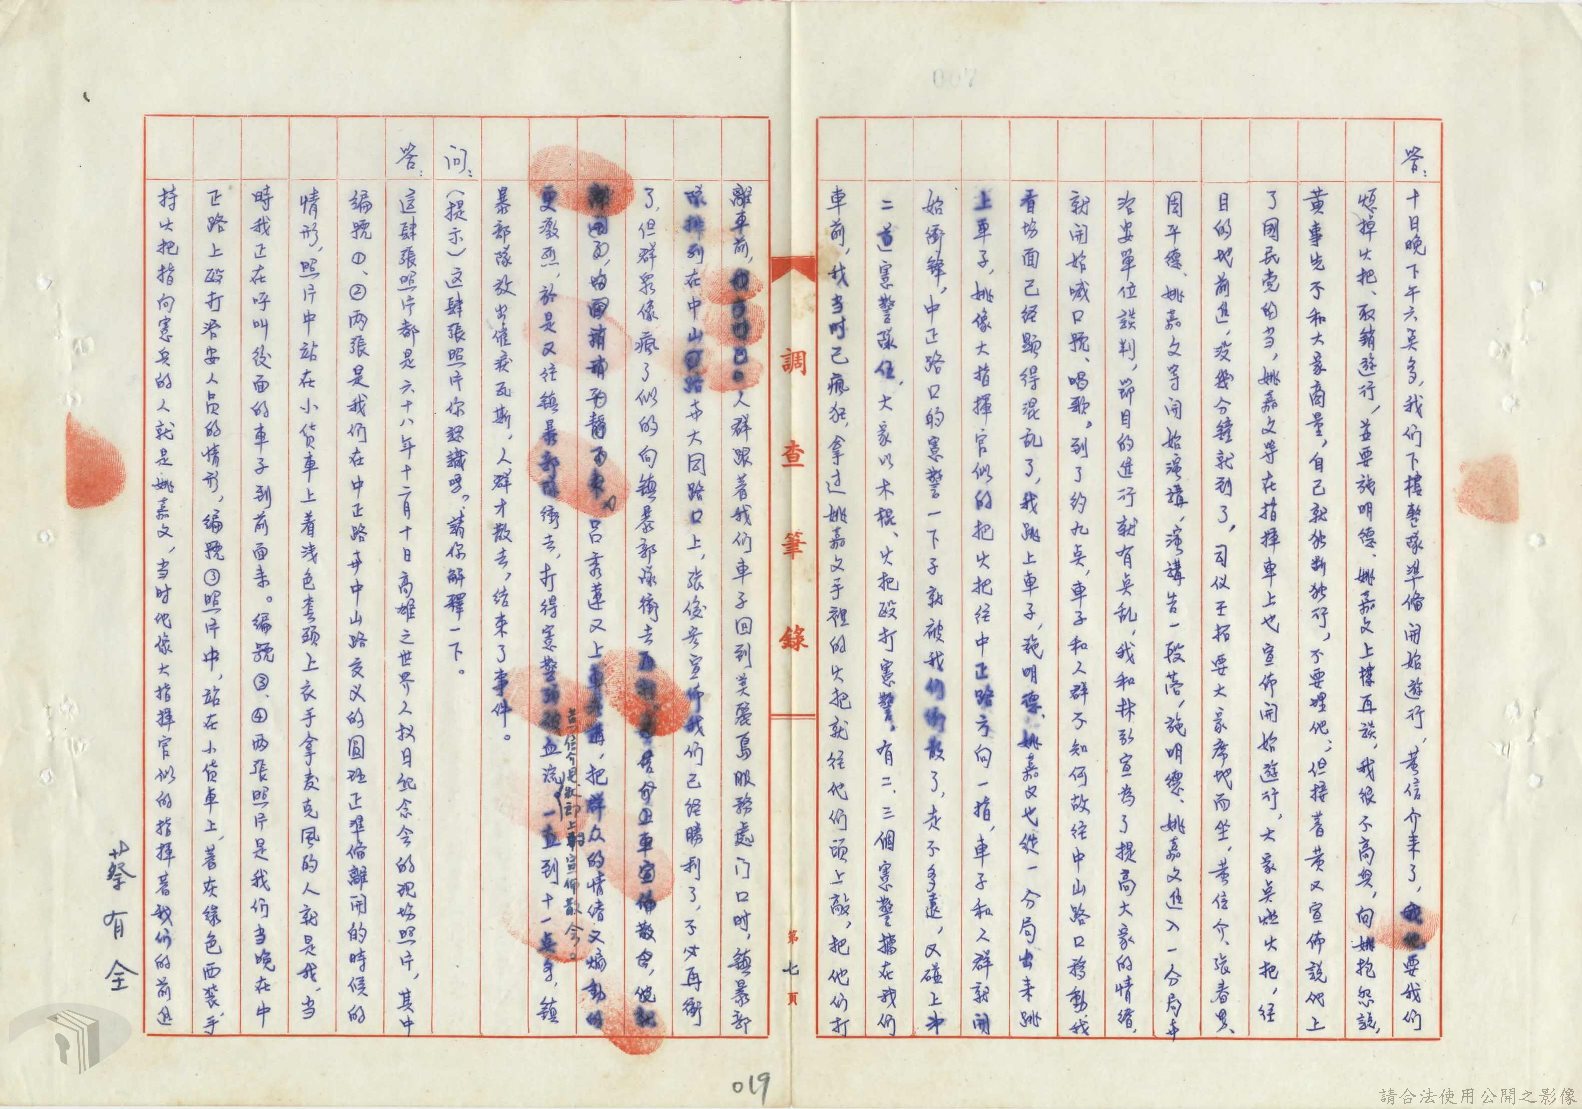 答：十日晚下午六点多，我们下樓整隊準備開始遊行，黃信介來了，要我们
熄掉火把、取銷遊行，並要施明德、姚嘉文上樓再談，我很不高興，向姚抱怨說，
黃事先不和大家商量，自己就独断独行，不要理他；但接著黃又宣佈說他上
了國民党的当，姚嘉文等在指揮車上也宣佈開始遊行，大家点燃火把，往
目的地前進，没幾分鐘就到了，司仪王拓要大家席地而坐，黃信介、張春男、
周平德、姚嘉文等開始演講，演講告一段落，施明德、姚嘉文進入一分局与
治安單位談判，節目的進行就有点乱，我和林弘宣為了提高大家的情緒，
就開始喊口號、唱歌，到了約九点，車子和人群不知何故往中山路口移動我
看場面已經顯得混乱了，我跳上車子，施明德、姚嘉文也從一分局出来跳
上車子，姚像大指揮官似的把火把往中正路方向一指，車子和人群就開
始衝鋒，中正路口的憲警一下子就被我们衝散了，走不多遠，又碰上第
二道憲警隊伍，大家以木棍、火把毆打憲警。有二、三個憲警擋在我们
車前，我当时已瘋狂，拿过姚嘉文手裡的火把就往他们頭上敲，把他们打
調查筆錄
第七頁
離車前，人群跟著我们車子回到美麗島服務處门口时，鎮暴部
隊排列在中山路与大同路口上，張俊宏宣佈我们已经勝利了，不必再衝
了，但群眾像瘋了似的向鎮暴部隊衝去車宣佈散会，他就
離開了，場面稍稍平靜下来。吕秀蓮又上車演講，把群众的情绪又煽動的
更激烈，於是又往鎮暴部隊衝去，打得憲警頭破血流，一直到十一点多，鎮
暴部隊放出催淚瓦斯，人群才散去，结束了事件。
問：（提示）这肆張照片你認識嗎？請你解釋一下。
答：这肆張照片都是六十八年十二月十日高雄之世界人权日纪念会的现场照片，其中
編號①、②两張是我们在中正路与中山路交义的圓环正準備離開的時候的
情形，照片中站在小货車上着浅色套頭上衣手拿麦克風的人就是我，当
時我正在呼叫後面的車子到前面来。編號③、④两張照片是我们当晚在中
正路上毆打治安人员的情形，編號③照片中，站在小货車上，著灰綠色西裝手
持火把指向憲兵的人就是姚嘉文，当时他像大指揮官似的指揮著我们的前進
蔡有全
019
請合法使用公開之影像